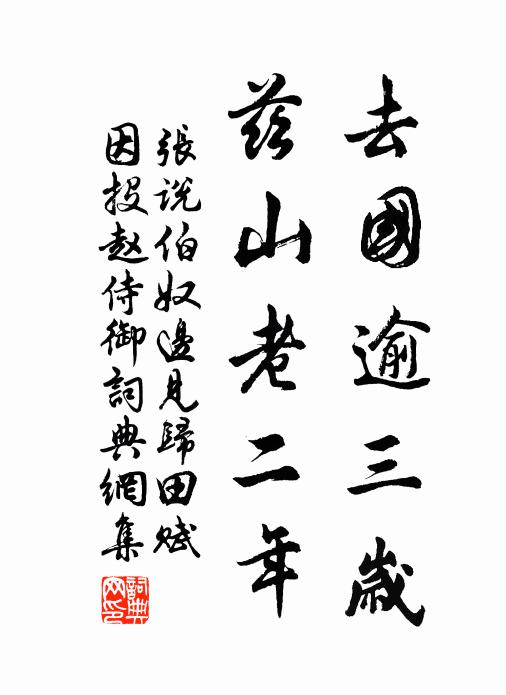 去國逾三歲
茲山老二年
張説伯奴邊見歸田賦
因投趙侍御詞典網集
詞典網印